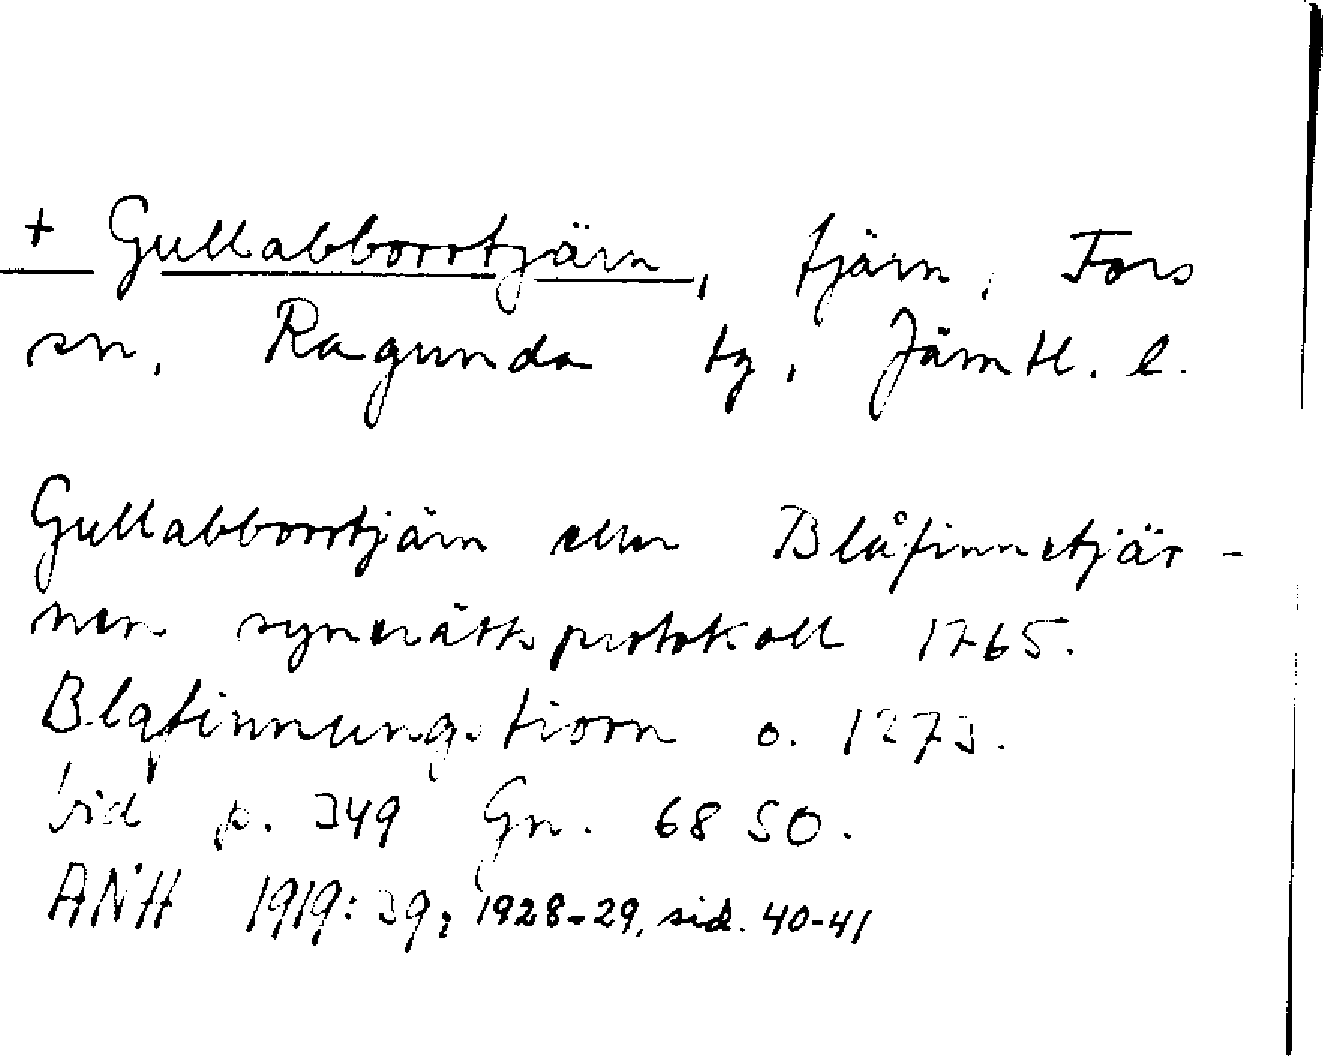 + Gullabborrtjärn, tjärn, Fors
sn, Ragunda tg, Jämtl. l.
Gullabborrtjärn eller Blåfinnetjär-
nen synerättsprotokoll 1765.
Blafinnungstiorn o. 1273.
p. 349 Gn. 6850.
ANH 1919:39, 1928-29, sid. 40-41